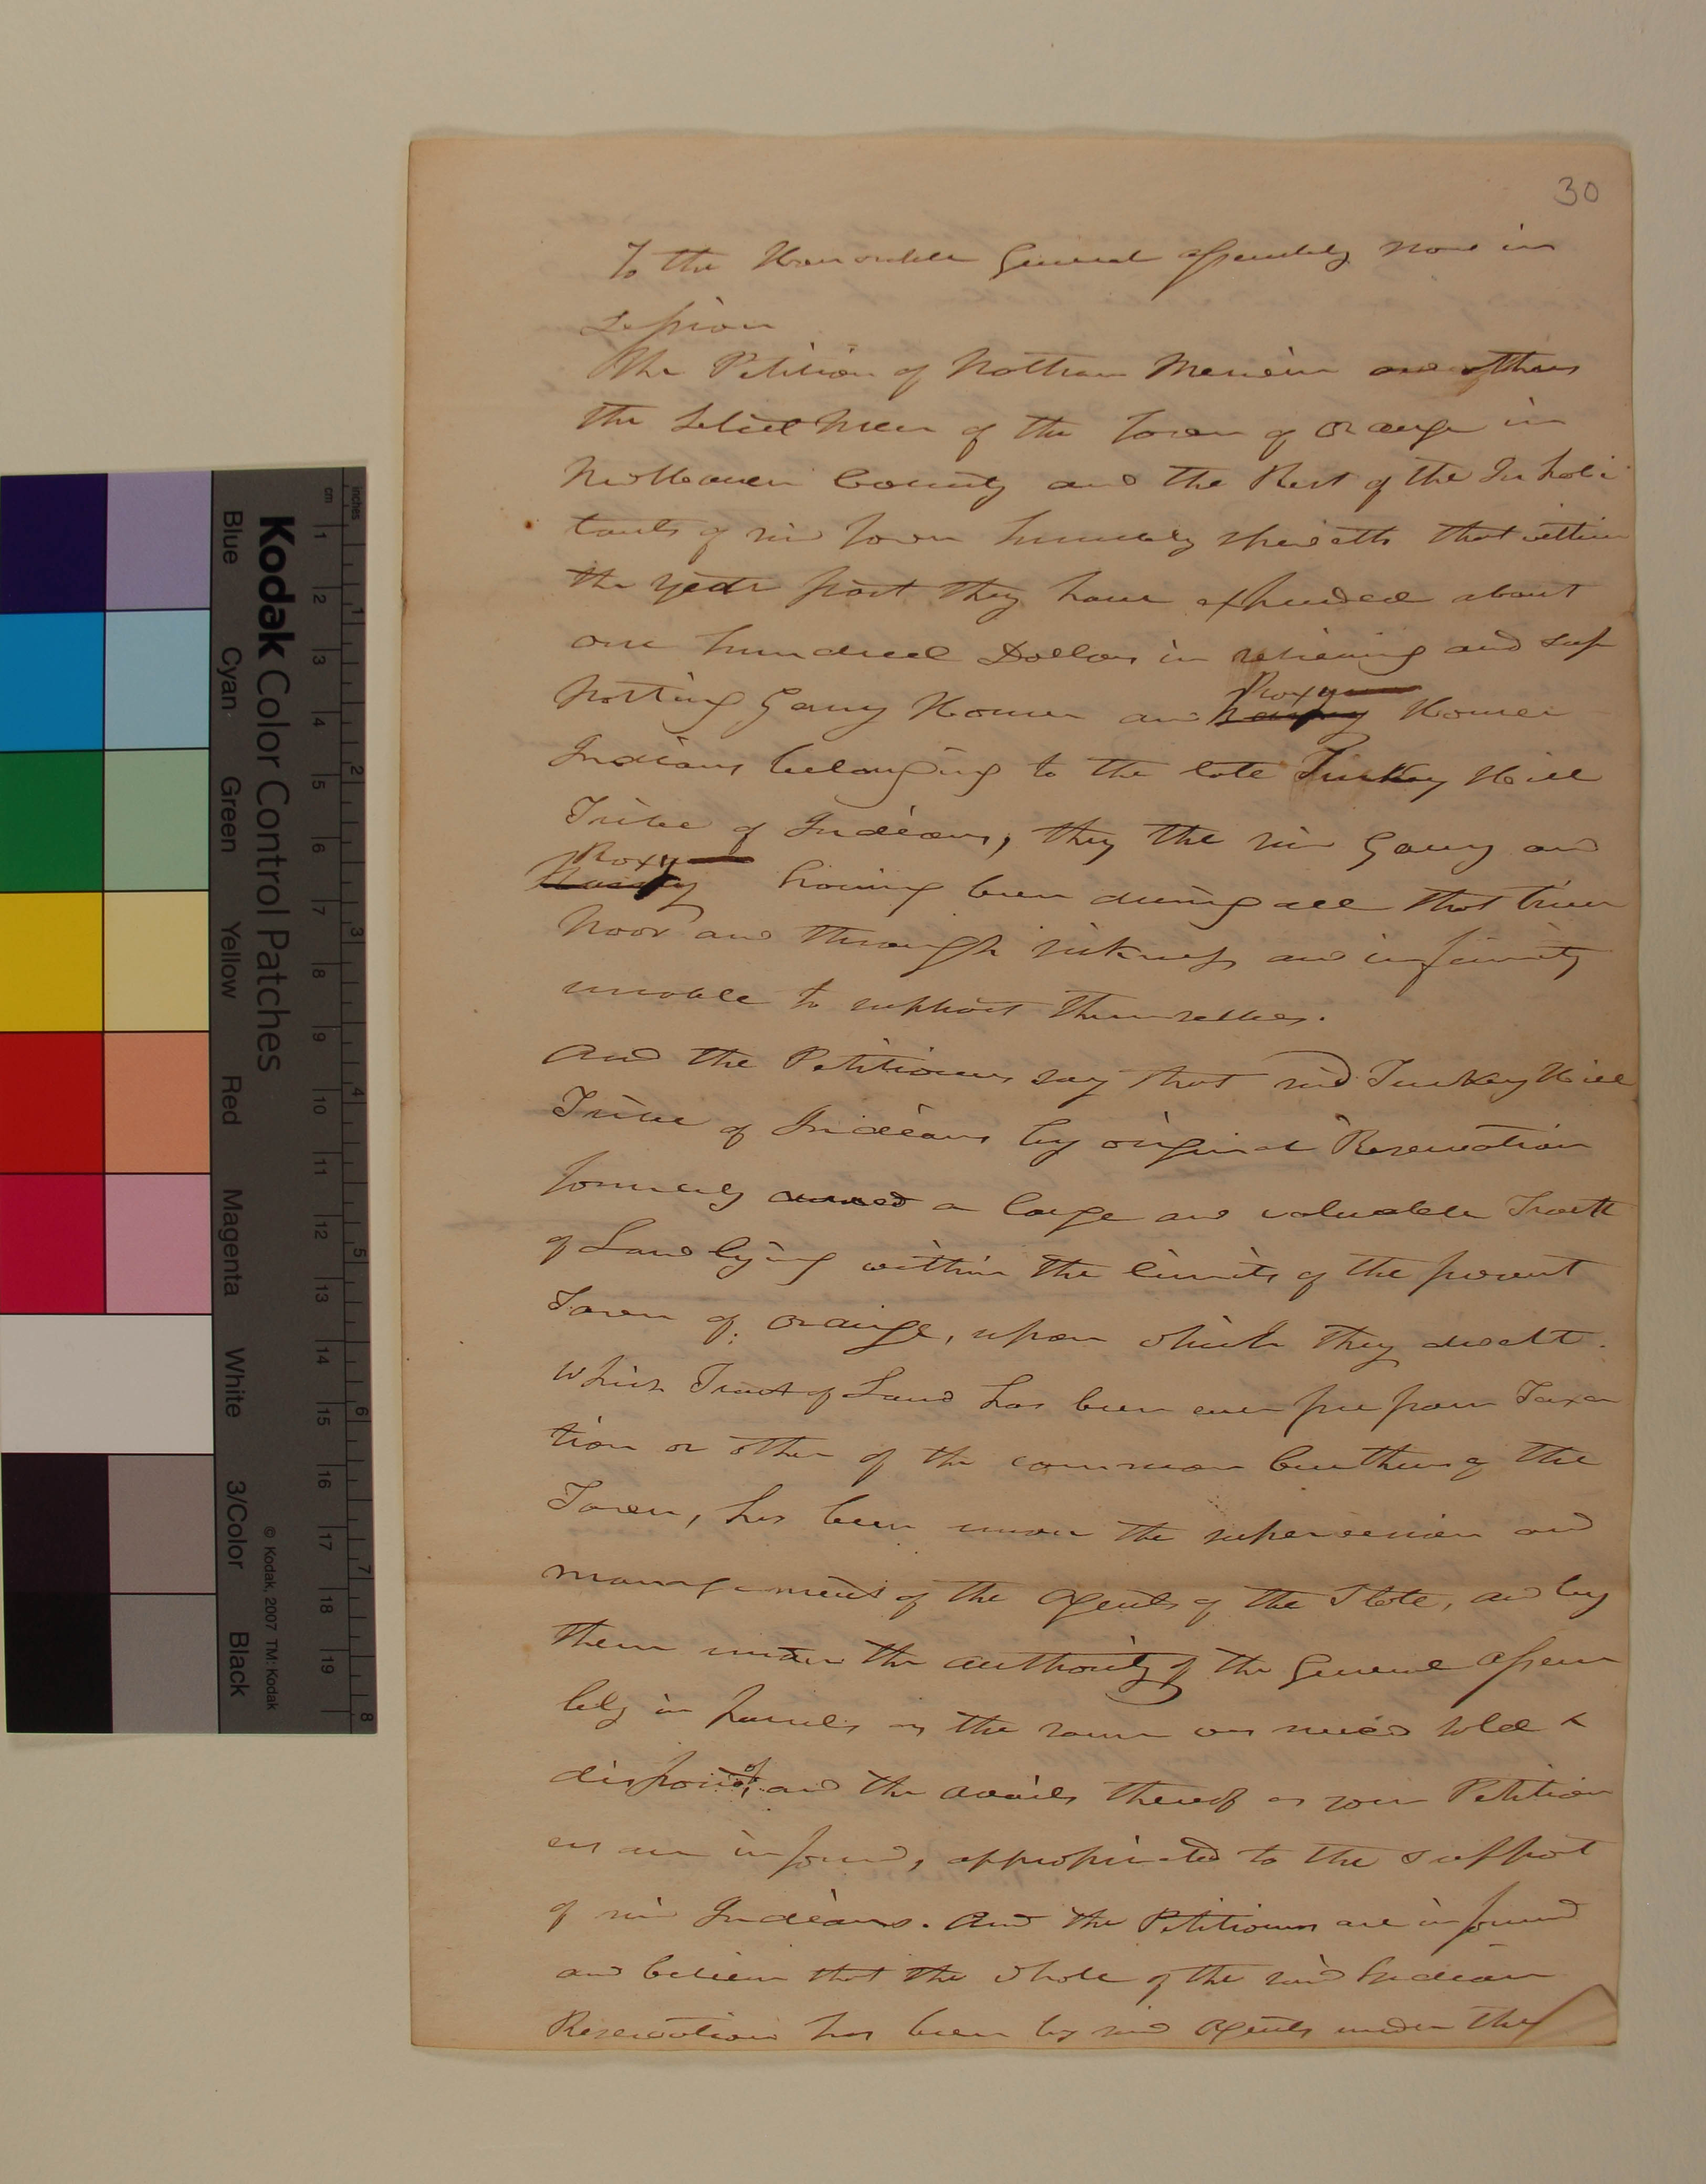 30
To the Honorable General Assembly now in
Session
The Petition of Nathan Merwin and others
the Select Men of the Town of Orange in
New Haven County and the Rest of the Inhabi
tants of said Town humbly sheweth that within
the year past they have expended about
one hundred Dollars in relieving and sup
porting Garry Homer and Roxy Homer
Indians belonging to the late Turkey Hill
Tribe of Indians, they the said Garry and
Roxy having been during all that time
poor and through sickness and infirmity
unable to support themselves.
And the Petitioners say that said Turkey Hill
Tribe of Indians by original Reservation
formerly owned a large and valuable Tract
of Land lying within the limits of the present
Town of Orange, upon which they dwelt.
which Tract of Land has been ever free from Taxa
tion or other of the common burthens of the
Town, has been under the supervision and
management of the Agents of the State, and by
them under the authority of the General Assem
bly in parcels as the same was need sold &
disposed of, and the avails thereof as your Petition
ers are informd, appropriated to the support
of said Indians. And the Petitioners are informd
and believe that the whole of the said Indian
Reservation has been by said Agents under the
Kodak Color Control Patches
© Kodak, 2007 TM: Kodak
Blue Cyan Green Yellow Red Magenta White 3/Color Black
inches 1 2 3 4 5 6 7 8
cm 1 2 3 4 5 6 7 8 9 10 11 12 13 14 15 16 17 18 19